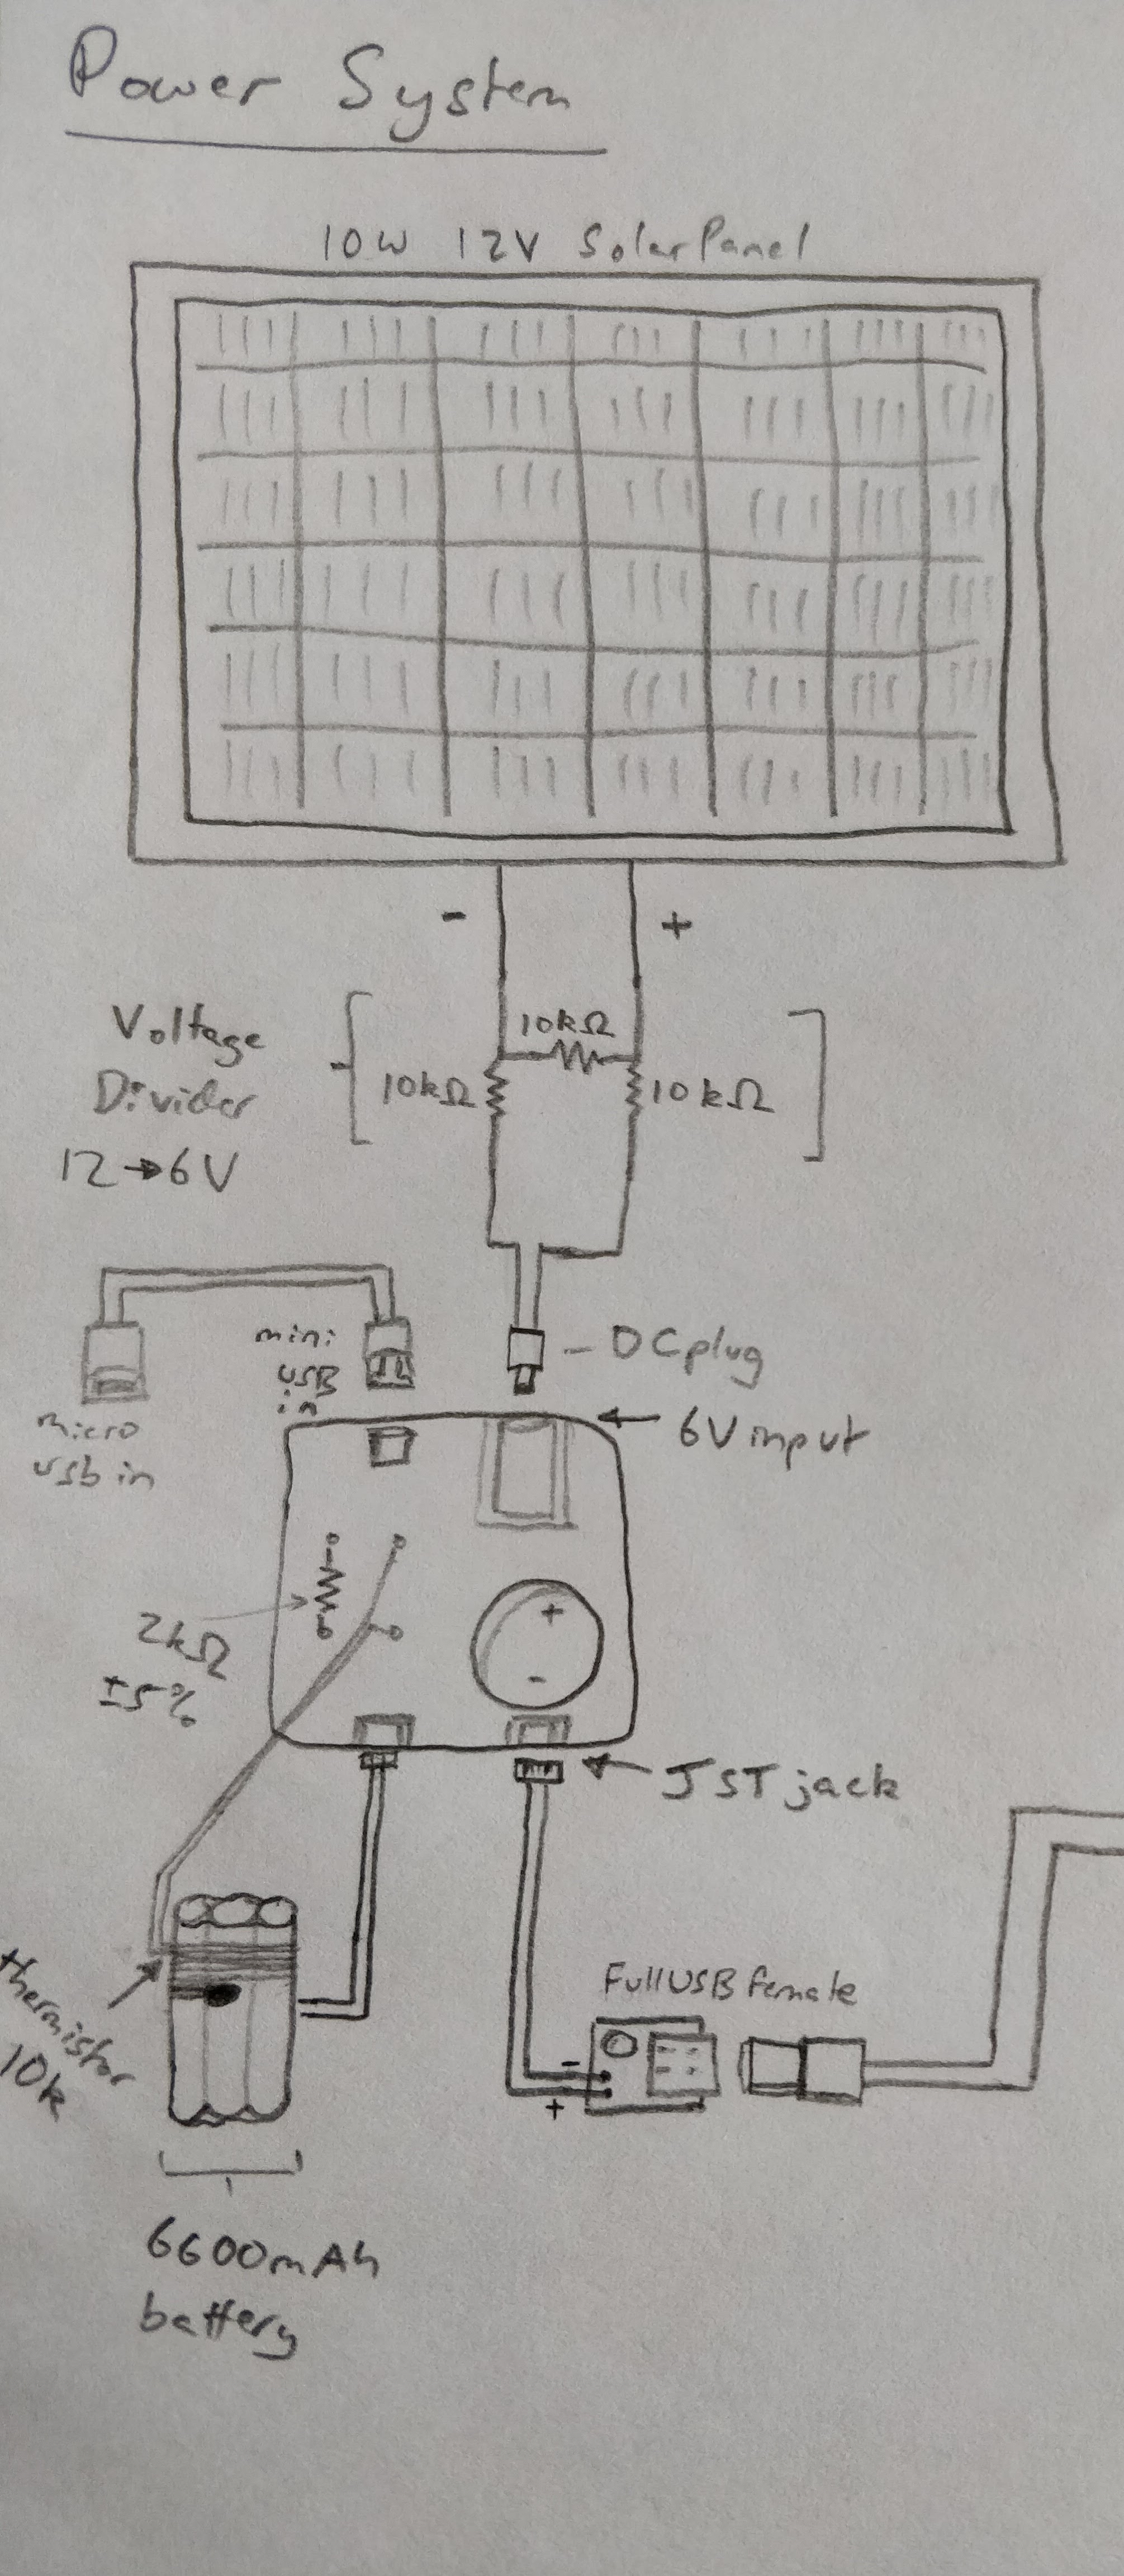 Power System
10W 12V Solar Panel
- +
Voltage
Divider
12→6V
10kΩ
10kΩ
10kΩ
mini
USB
in
DC plug
micro
usb in
6V input
2kΩ
±5%
+
-
JST jack
thermistor
10k
Full USB female
-
+
6600mAh
battery